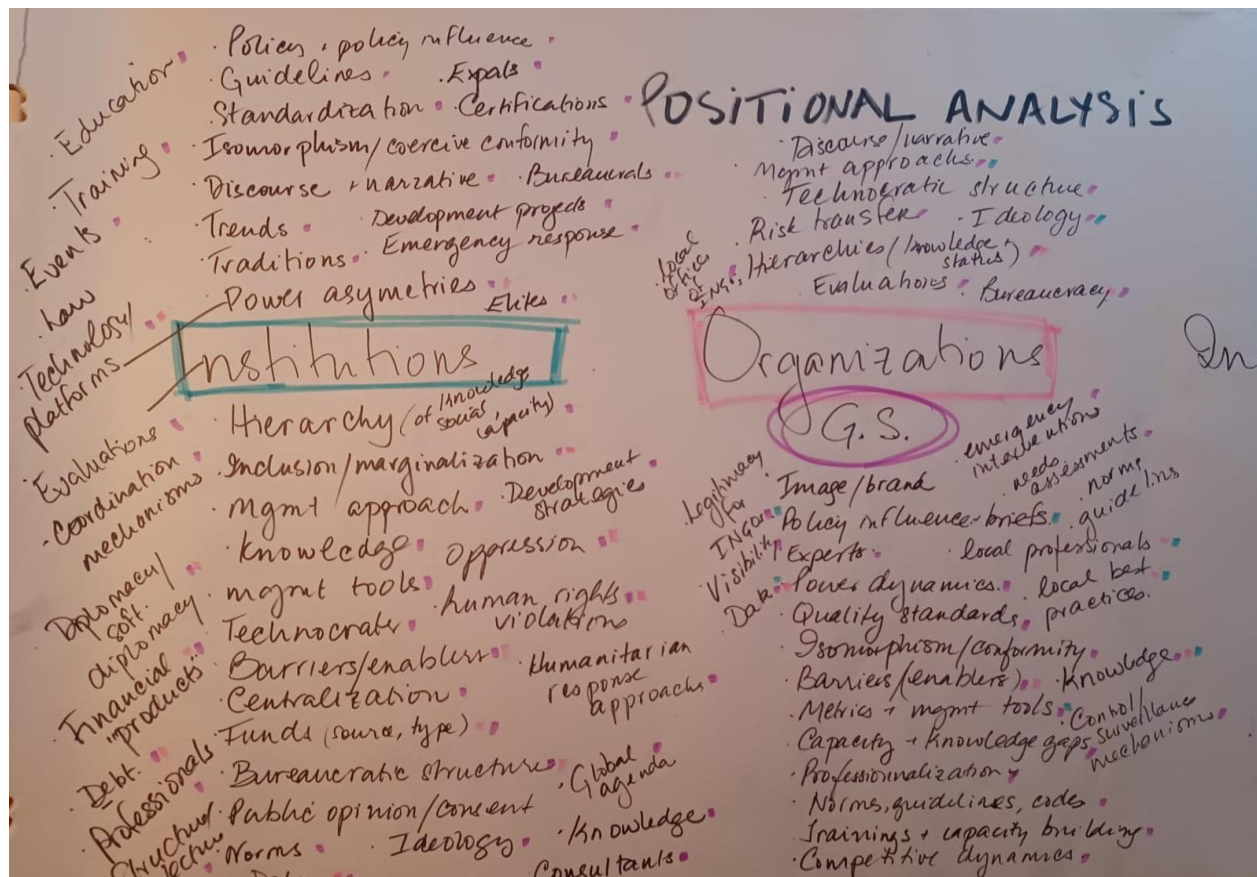 POSITIONAL ANALYSIS
· Education
· Training
· Events
· Law
· Technology/
platforms
· Evaluations
· Coordination
mechanisms
Diplomacy/
soft.
diplomacy
· Financial
"products"
· Debt.
· Professionals
· Policies, policy influence
· Guidelines · Expats
· Standardization · Certifications
· Isomorphism/coercive conformity
· Discourse + narrative · Bureaucrats
· Trends · Development projects
· Traditions · Emergency response
· Power asymmetries
Elites
Institutions
· Hierarchy (of knowledge
social, capacity)
· Inclusion/marginalization
· Mgmt approach · Development
strategies
· Knowledge oppression
· mgmt tools
· human rights
violations
· Technocrats
· Barriers/enablers · Humanitarian
response
approachs
· Centralization
· Funds (source, type)
· Bureaucratic structures
· Global
agenda
· Public opinion/consent
· Norms · Ideology · Knowledge
Consultants
· Discourse/narrative
· Mgmt approachs
· Technocratic structure
· Risk transfer · Ideology
· Local
offices
of
INGOs
· Hierarchies (knowledge +
status)
· Evaluations · Bureaucracy
Organizations
G.S.
In
· Legitimacy
for
INGOs
· Visibility
· Data
· Image/brand
emergency
interventions
needs
assessments
norms
guidelins
· Policy influence-briefs
· Experts · local professionals
· Power dynamics · local best
practices.
· Quality standards
· Isomorphism/conformity
· Barriers (enablers) · Knowledge
· Metrics + mgmt tools
· Control/
surveillance
mechanisms
· Capacity + Knowledge gaps
· Professionnalization
· Norms, guidelines, codes
· Trainings + capacity building
· Competitive dynamics